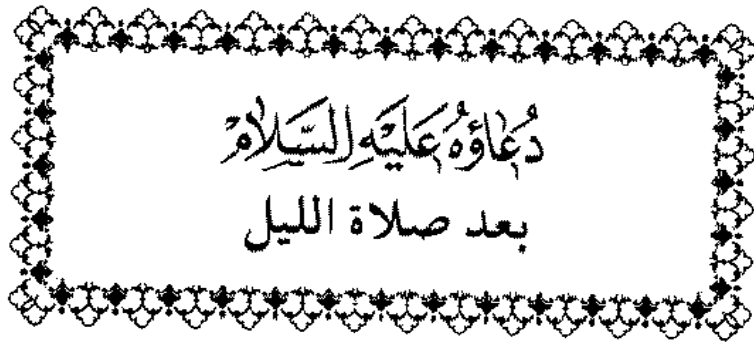 دُعَاؤُهُ عَلَيْهِ السَّلَامْ
بعد صلاة الليل